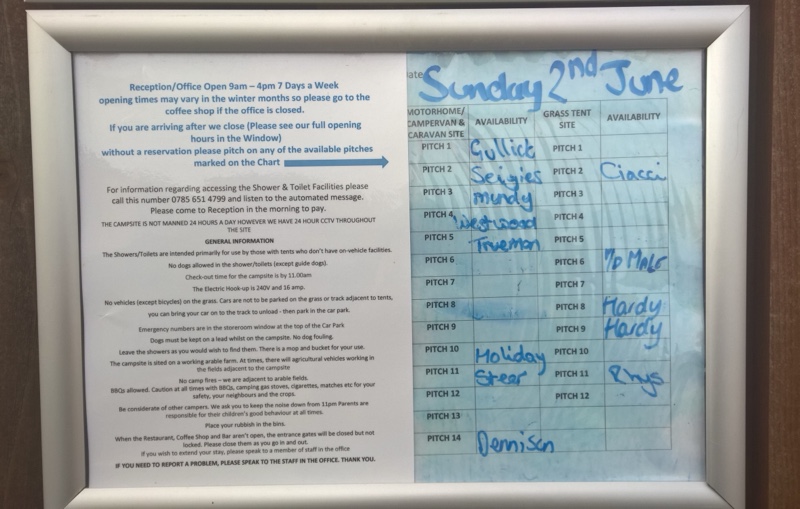 Reception/Office Open 9am – 4pm 7 Days a Week
opening times may vary in the winter months so please go to the
coffee shop if the office is closed.
If you are arriving after we close (Please see our full opening
hours in the Window)
without a reservation please pitch on any of the available pitches
marked on the Chart
For information regarding accessing the Shower & Toilet Facilities please
call this number 0785 651 4799 and listen to the automated message.
Please come to Reception in the morning to pay.
THE CAMPSITE IS NOT MANNED 24 HOURS A DAY HOWEVER WE HAVE 24 HOUR CCTV THROUGHOUT
THE SITE
GENERAL INFORMATION
The Showers/Toilets are intended primarily for use by those with tents who don't have on-vehicle facilities.
No dogs allowed in the shower/toilets (except guide dogs).
Check-out time for the campsite is by 11.00am
The Electric Hook-up is 240V and 16 amp.
No vehicles (except bicycles) on the grass. Cars are not to be parked on the grass or track adjacent to tents,
you can bring your car on to the track to unload - then park in the car park.
Emergency numbers are in the storeroom window at the top of the Car Park
Dogs must be kept on a lead whilst on the campsite. No dog fouling.
Leave the showers as you would wish to find them. There is a mop and bucket for your use.
The campsite is sited on a working arable farm. At times, there will agricultural vehicles working in
the fields adjacent to the campsite
No camp fires – we are adjacent to arable fields.
BBQs allowed. Caution at all times with BBQs, camping gas stoves, cigarettes, matches etc for your
safety, your neighbours and the crops.
Be considerate of other campers. We ask you to keep the noise down from 11pm Parents are
responsible for their children's good behaviour at all times.
Place your rubbish in the bins.
When the Restaurant, Coffee Shop and Bar aren't open, the entrance gates will be closed but not
locked. Please close them as you go in and out.
If you wish to extend your stay, please speak to a member of staff in the office
IF YOU NEED TO REPORT A PROBLEM, PLEASE SPEAK TO THE STAFF IN THE OFFICE. THANK YOU.
ate Sunday 2nd June
MOTORHOME/ CAMPERVAN & CARAVAN SITE AVAILABILITY GRASS TENT SITE AVAILABILITY
PITCH 1 Gullick PITCH 1
PITCH 2 Seigies PITCH 2 Ciacci
PITCH 3 Mundy PITCH 3
PITCH 4 Westwood PITCH 4
PITCH 5 Trueman PITCH 5
PITCH 6 PITCH 6
PITCH 7 PITCH 7
PITCH 8 PITCH 8 Hardy
PITCH 9 PITCH 9 Hardy
PITCH 10 Holiday PITCH 10
PITCH 11 Steer PITCH 11 Rhys
PITCH 12 PITCH 12
PITCH 13
PITCH 14 Dennison